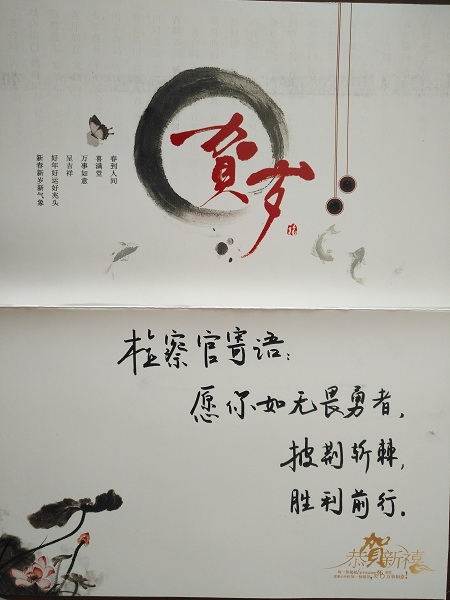 贺岁
春到人间
喜满堂
万事如意
呈吉祥
好年好运好兆头
新春新岁新气象
检察官寄语：
愿你如无畏勇者，
披荆斩棘，
胜利前行。
恭贺新禧